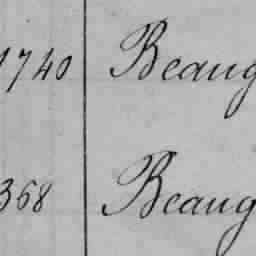 1740 Beaug
368 Beaug